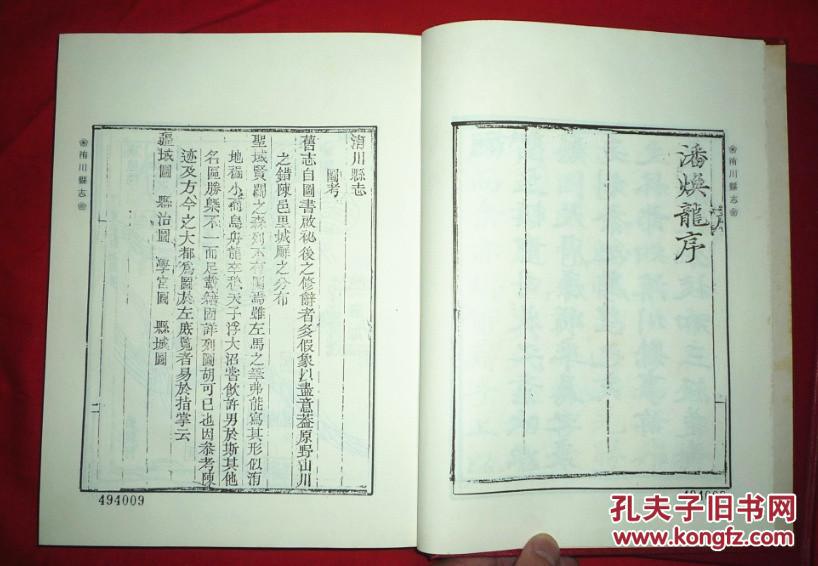 潘煥龍序
洧川縣志
洧川縣志
圖考
舊志自圖書啟祕後之修辭者多假象以盡意蓋原野山川
之錯陳邑里城廨之分布
聖域賢關之森列不有圖焉雖左馬之筆弗能寫其形似洧
地褊小而鳥舟龍卒穆天子浮大沼嘗飲許男於斯其他
名區勝槩不一而足載籍固詳列圖胡可已也因參考陳
迹及方今之大都爲圖於左庶覧者易於指掌云
疆域圖 縣治圖 學宮圖 縣城圖
洧川縣志
一
494009
孔夫子旧书网
KONGFZ.COM